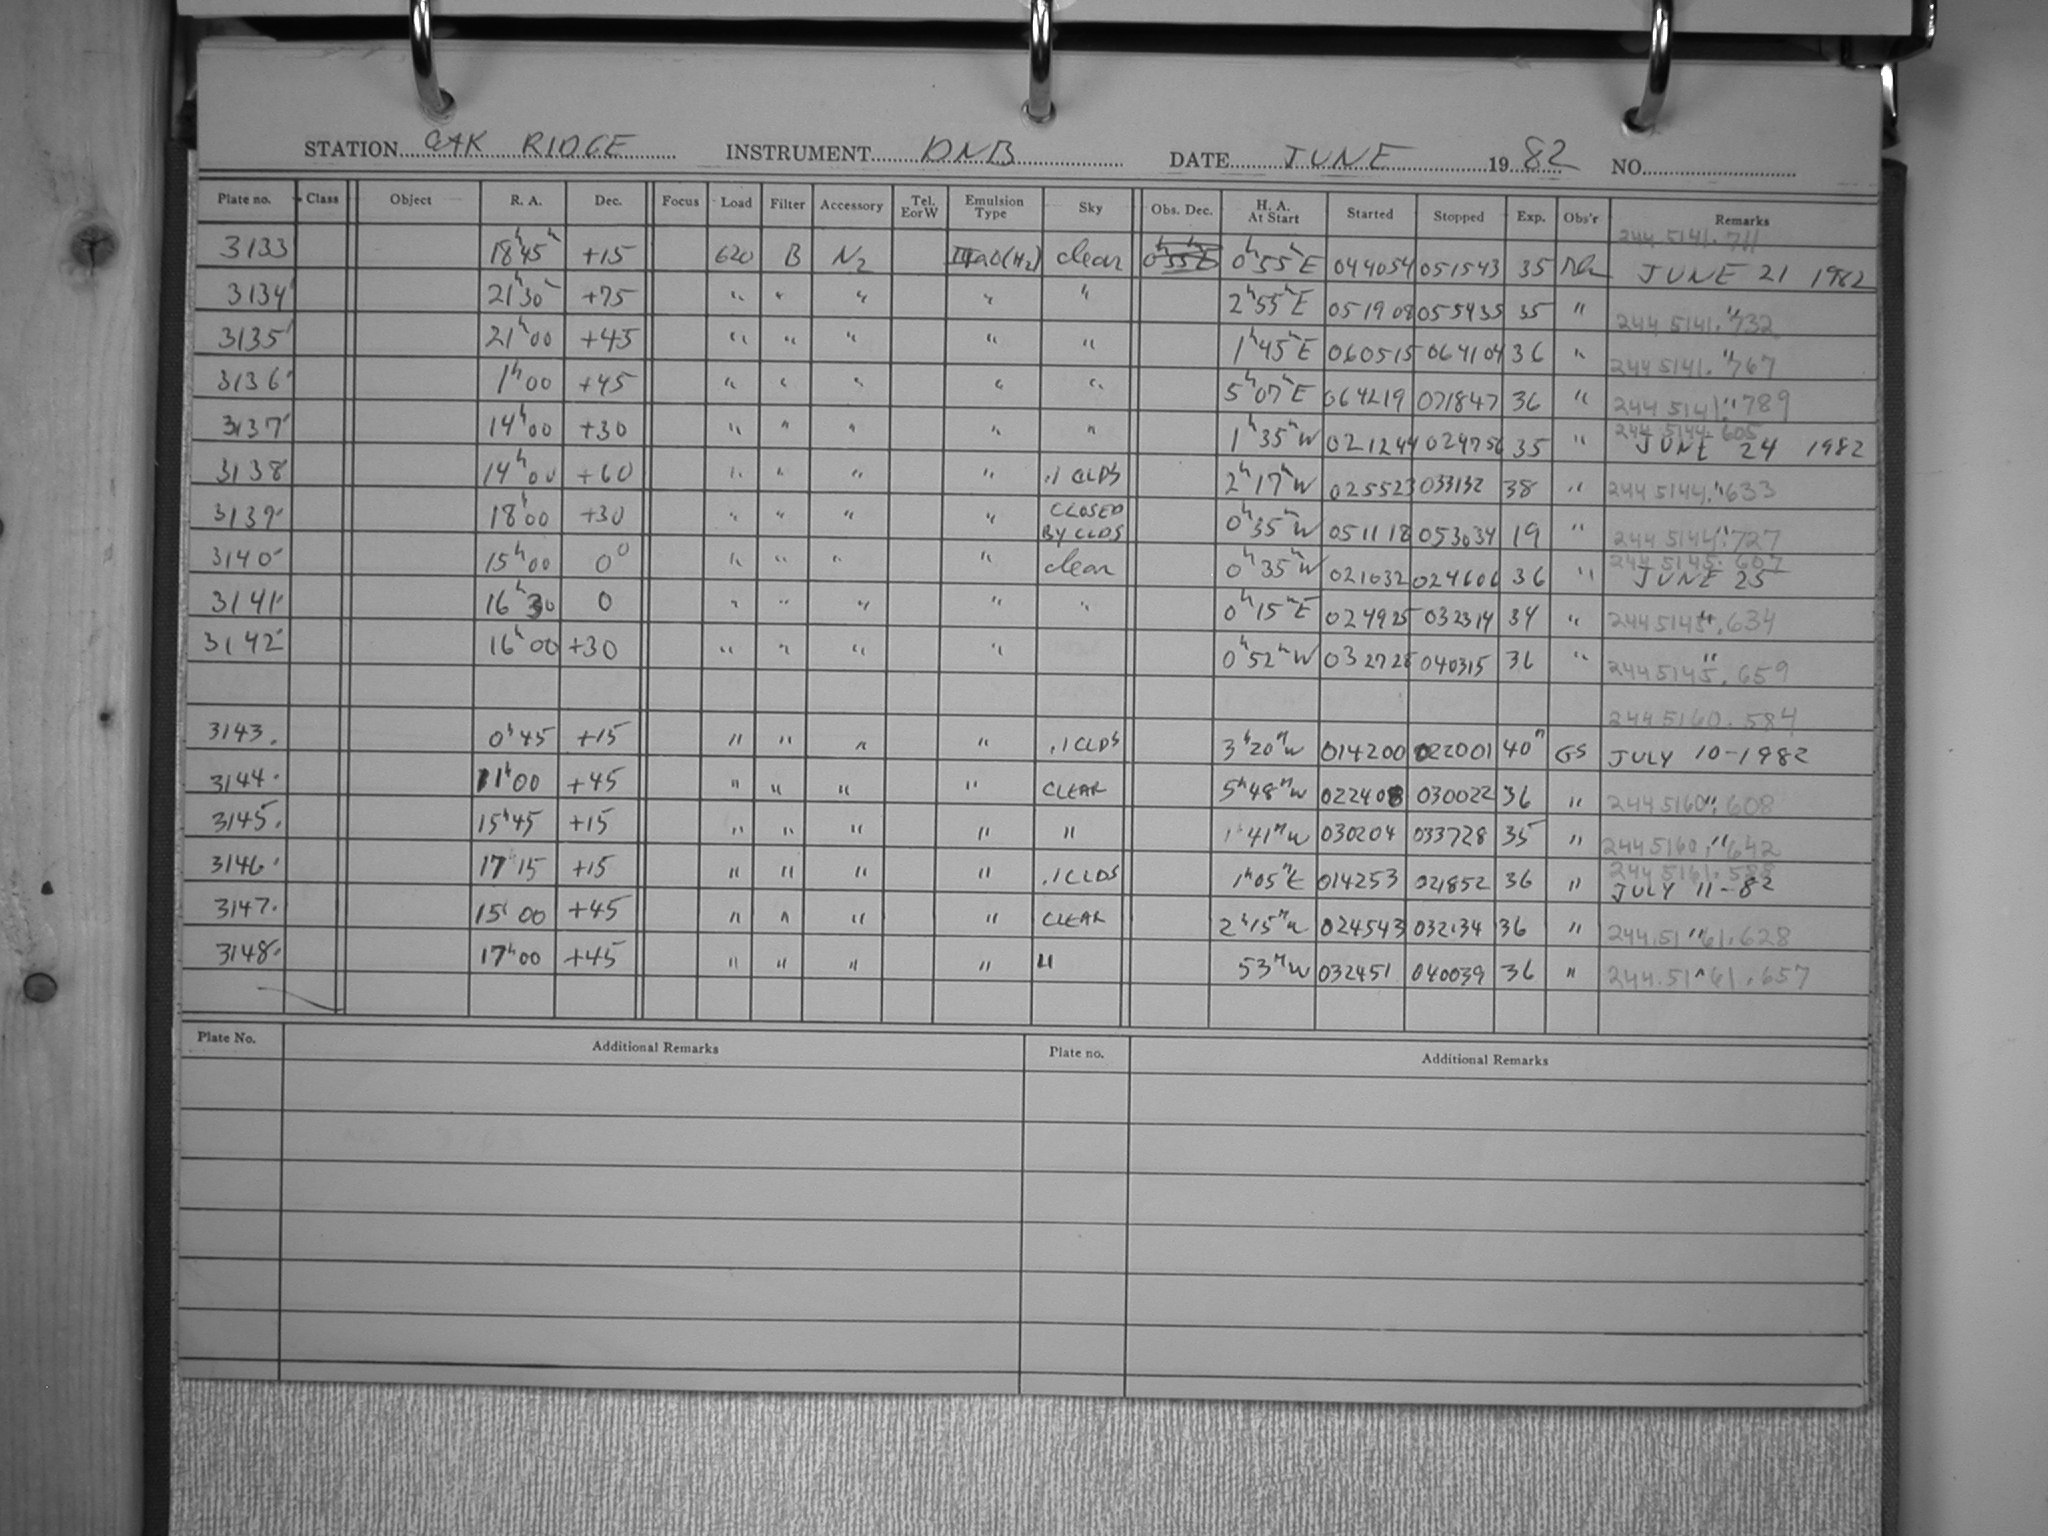 STATION OAK RIDGE INSTRUMENT DNB DATE JUNE 1982 NO.
Plate no. Class Object R. A. Dec. Focus Load Filter Accessory Tel. E or W Emulsion Type Sky Obs. Dec. H. A. At Start Started Stopped Exp. Obs'r Remarks
244 5141.711
3133 18h45m +15 620 B N2 IIaO(H2) clear 0h55mE 044054 051543 35 JUNE 21 1982
3134 21h30m +75 " " " " " 2h55mE 051908 055435 35 " "
244 5141.732
3135 21h00 +45 " " " " " 1h45mE 060515 064104 36 " "
244 5141.767
3136 1h00 +45 " " " " " 5h07mE 064219 071847 36 " "
244 5141.789
244 5144.605
3137 14h00 +30 " " " " " 1h35mW 021244 024756 35 " JUNE 24 1982
3138 14h00 +60 " " " " .1 CLDS 2h17mW 025523 033132 38 " "
244 5144.633
3139 18h00 +30 " " " " CLOSED BY CLDS 0h35mW 051118 053034 19 " "
244 5144.727
244 5145.607
3140 15h00 0° " " " " clear 0h35mW 021032 024606 36 " JUNE 25
3141 16h30 0 " " " " " 0h15mE 024925 032314 34 " "
244 5145.634
3142 16h00 +30 " " " " 0h52mW 032728 040315 36 " "
244 5145.659
244 5160.584
3143. 0h45 +15 " " " " .1 CLDS 3h20mW 014200 022001 40m GS JULY 10-1982
3144. 11h00 +45 " " " " CLEAR 5h48mW 022408 030022 36 " "
244 5160.608
3145. 15h45 +15 " " " " " 1h41mW 030204 033728 35 " "
244 5160.642
244 5161.588
3146. 17h15 +15 " " " " .1 CLDS 1h05mE 014253 021852 36 " JULY 11-82
3147. 15h00 +45 " " " " CLEAR 2h15mW 024543 032134 36 " "
244.5161.628
3148. 17h00 +45 " " " " " 53mW 032451 040039 36 " "
244.5161.657
Plate No. Additional Remarks Plate no. Additional Remarks